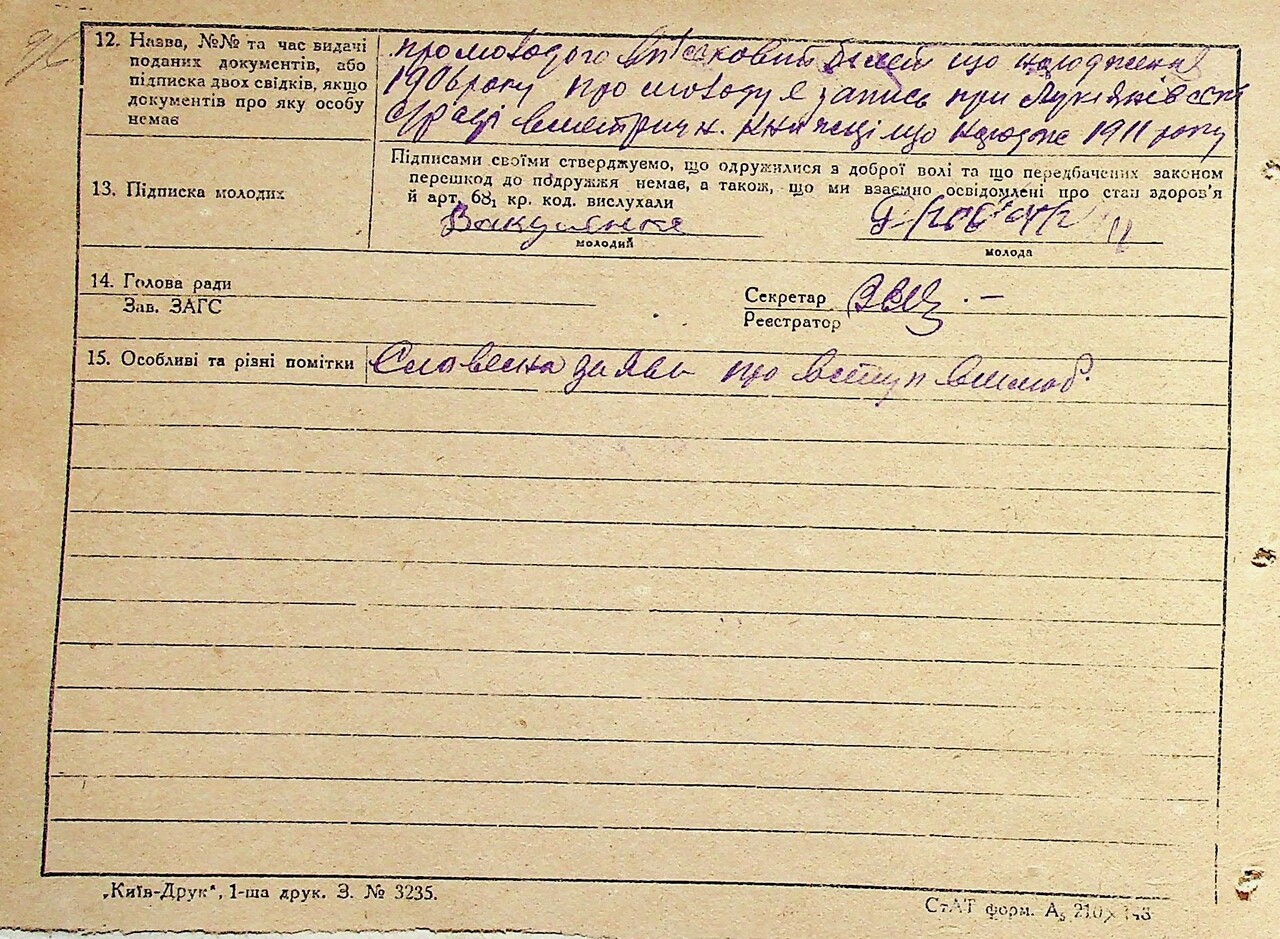 12. Назва, №№ та час видачі
поданих документів, або
підписка двох свідків, якщо
документів про яку особу
немає
про молодого військовий білет що народження
1906 року про молоду є запись при Лукянівські
с/раді вметричн. книжці що народж 1911 року
13. Підписка молодих
Підписами своїми стверджуємо, що одружилися з доброї волі та що передбачених законом
перешкод до подружжя немає, а також, що ми взаємно освідомлені про стан здоров'я
й арт. 68₁ кр. код. вислухали
Вакуленко
молодий
молода
14. Голова ради
Зав. ЗАГС
Секретар
Реєстратор
15. Особливі та різні помітки
Словесна заява про вступ вшлюб.
„Київ-Друк“, 1-ша друк. З. № 3235.
СтАТ форм. А₅ 210×148